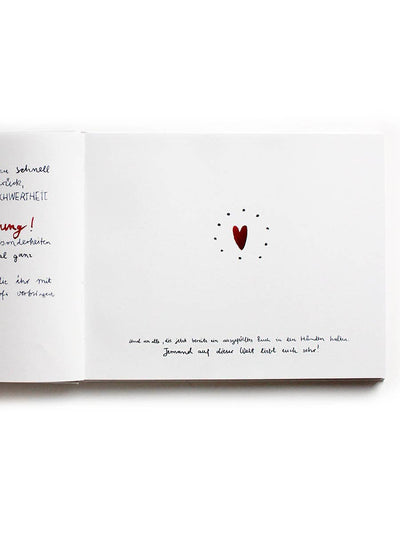 schnell
CHWERTHEIT
ung!
sonderheiten
al ganz
die ihr mit
verbringen
Und an alle, die jetzt bereits ein ausgefülltes Buch in den Händen halten.
Jemand auf dieser Welt liebt euch sehr!